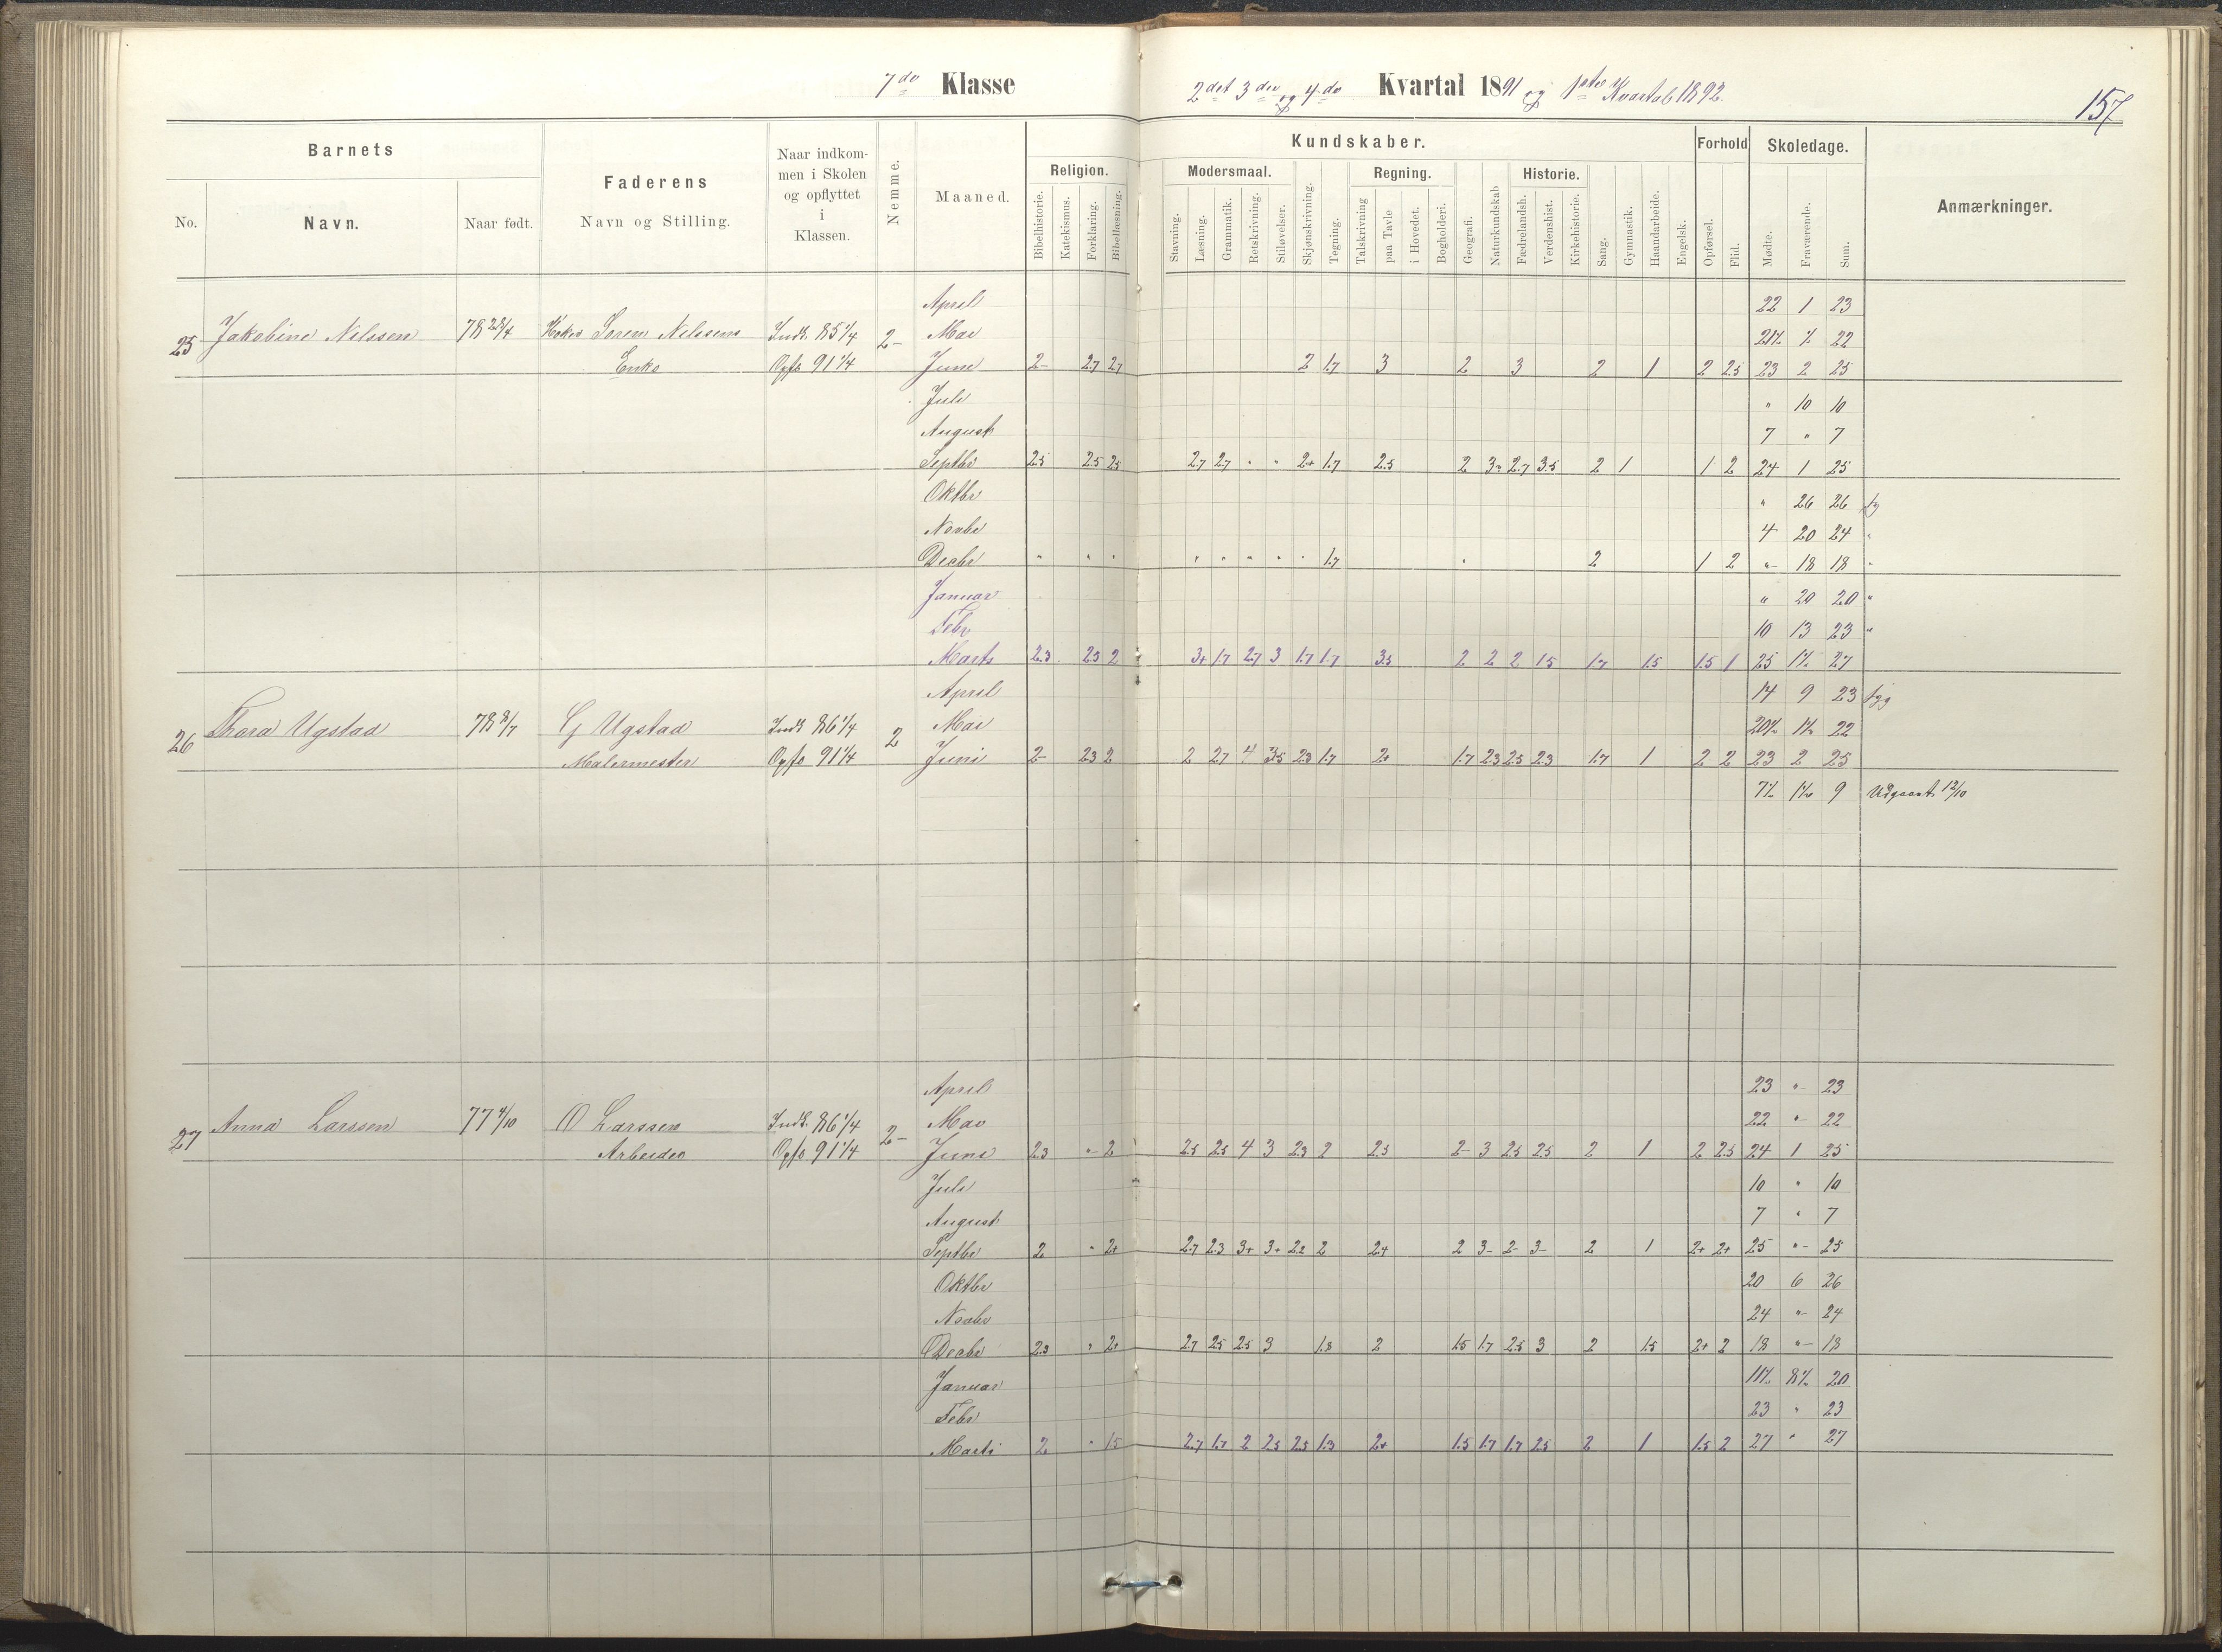 7de Klasse
2det 3die og 4de Kvartal 1891 og 1ste Kvartal 1892.
157
Barnets
Faderens
Naar indkommen i Skolen og opflyttet i Klassen.
Nemme.
Maaned.
Kundskaber.
Forhold
Skoledage.
Anmærkninger.
No.
Navn.
Naar født.
Navn og Stilling.
Religion.
Modersmaal.
Regning.
Historie.
Bibelhistorie. Katekismus. Forklaring. Bibellæsning. Stavning. Læsning. Grammatik. Retskrivning. Stiløvelser. Skjønskrivning. Tegning. Talskrivning paa Tavle i Hovedet. Bogholderi. Geografi. Naturkundskab Fædrelandsh. Verdenshist. Kirkehistorie. Sang. Gymnastik. Haandarbeide. Engelsk. Opførsel. Flid. Mødte. Fraværende. Sum.
April 22 1 23
25 Jakobine Nilssen 78 28/4 Søren Nilssens Indk. 85 1/4 2- Mai 21½ ½ 22
Enke Opfl 91 1/4 Juni 2- 2.7 2.7 2 1.7 3 2 3 2 1 2 2.5 23 2 25
Juli " 10 10
August 7 " 7
Septbr 2.5 2.5 2.5 2.7 2.7 " " 2+ 1.7 2.5 2 3- 2.7 3.5 2 1 1 2 24 1 25
Oktbr " 26 26 syg
Novbr 4 20 24 "
Decbr " " " " " " " " 1.7 " 2 1 2 " 18 18 "
Januar " 20 20 "
Febr 10 13 23 "
Marts 2.3 2.3 2 3+ 1.7 2.7 3 1.7 1.7 3.5 2 2 2 1.5 1.7 1.5 1.5 1 25 1½ 27
April 14 9 23 syg
26 Thora Ugstad 78 8/7 G Ugstad Indk 86 1/4 2 Mai 20½ 1½ 22
Malermester Opfl 91 1/4 Juni 2- 2.3 2 2 2.7 4 3.5 2.3 1.7 2+ 1.7 2.3 2.5 2.3 1.7 1 2 2 23 2 25
7½ 1½ 9 Udgaaet 12/10
April 23 " 23
27 Anna Larssen 77 4/10 O Larssen Indk. 86 1/4 2- Mai 22 " 22
Arbeider Opfl 91 1/4 Juni 2.3 " 2 2.5 2.5 4 3 2.3 2 2.5 2- 3 2.5 2.5 2 1 2 2.5 24 1 25
Juli 10 " 10
August 7 " 7
Septbr 2 " 2+ 2.7 2.3 3+ 3+ 2.2 2 2+ 2 3- 2- 3- 2 1 2+ 2+ 25 " 25
Oktbr 20 6 26
Novbr 24 " 24
Decbr 2.3 " 2+ 2.7 2.5 2.5 3 1.8 2 1.5 1.7 2.5 3 2 1.5 2+ 2 18 " 18
Januar 11½ 8½ 20
Febr 23 " 23
Marts 2 " 1.5 2.7 1.7 2 2.5 2.5 1.3 2+ 1.5 1.7 1.7 2.5 2 1 1.5 2 27 " 27